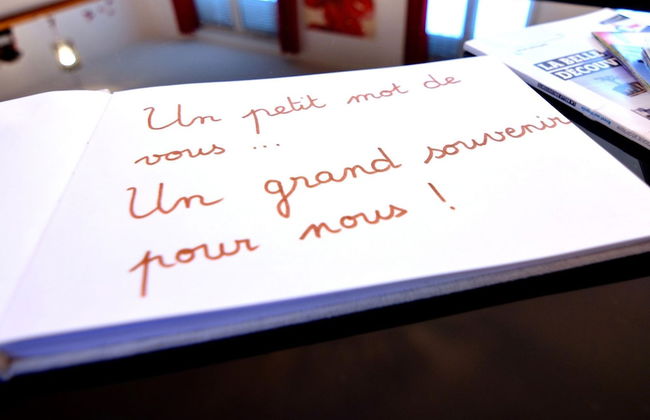 Un petit mot de
vous ...
Un grand souvenir
pour nous !
LA BELLE
DÉCOUV